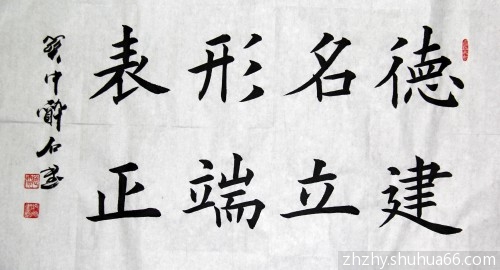 德建
名立
形端
表正
癸巳中醉石書
zhzhy.shuhua66.com